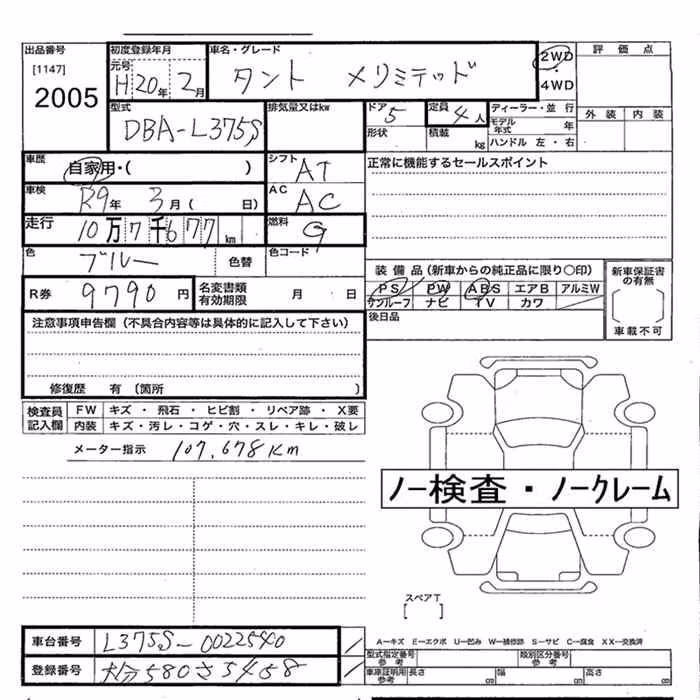 出品番号
[1147]
2005
初度登録年月
元号
H20年2月
車名・グレード
タント メリミテッド
2WD
・
4WD
評価点
外装 内装
型式
DBA-L375S
排気量又はkw
ドア 5
形状
定員 4人
積載 kg
ディーラー・並行
モデル年式 年
ハンドル 左・右
車歴
自家用・( )
シフト AT
正常に機能するセールスポイント
車検
R9年 3月( 日)
AC AC
走行
10万7千677km
燃料 G
色
ブルー
色替
色コード
装備品(新車からの純正品に限り○印)
PS PW ABS エアB アルミW
サンルーフ ナビ TV カワ
新車保証書の有無
車載不可
R券 9790円
名変書類有効期限 月 日
後日品
注意事項申告欄(不具合内容等は具体的に記入して下さい)
修復歴 有(箇所 )
検査員記入欄
FW キズ・飛石・ヒビ割・リペア跡・X要
内装 キズ・汚レ・コゲ・穴・スレ・キレ・破レ
メーター指示 107,678Km
ノー検査・ノークレーム
スペアT
[ ]
A—キズ E—エクボ U—凹み W—補修跡 S—サビ C—腐食 XX—交換済
車台番号 L375S-0022540
登録番号 大分580さ5458
型式指定番号 参考
類別区分番号 参考
車庫証明用参考 長さ cm 幅 cm 高さ cm